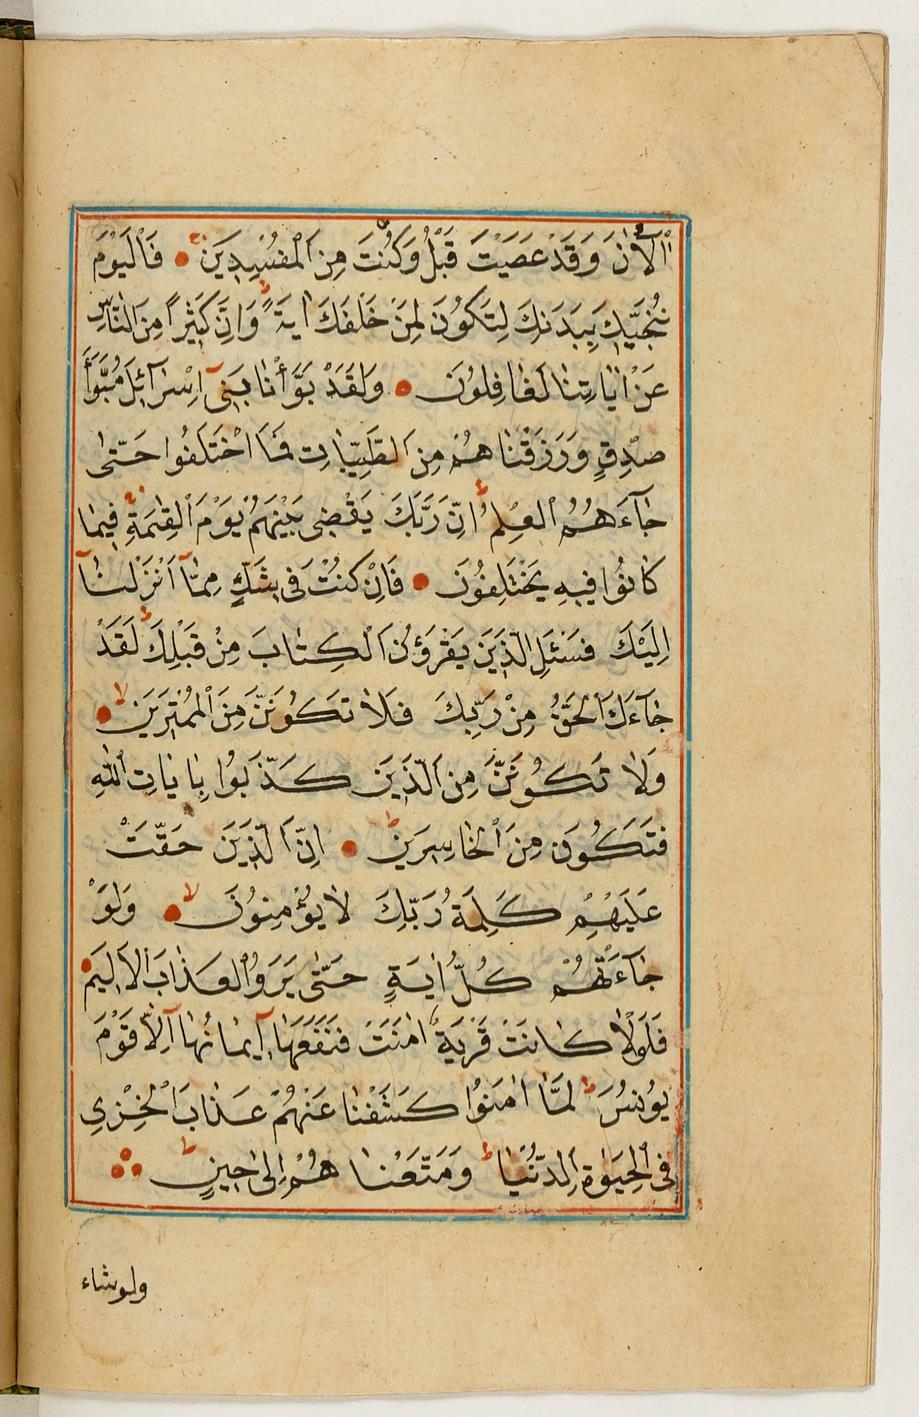 اٰلْاٰنَ وَقَدْ عَصَيْتَ قَبْلُ وَكُنْتَ مِنَ الْمُفْسِدِينَ فَالْيَوْمَ
نُنَجِّيكَ بِبَدَنِكَ لِتَكُونَ لِمَنْ خَلْفَكَ اٰيَةً وَاِنَّ كَثِيرًا مِنَ النَّاسِ
عَنْ اٰيَاتِنَا لَغَافِلُونَ وَلَقَدْ بَوَّأْنَا بَنِىٓ اِسْرَآئِلَ مُبَوَّأَ
صِدْقٍ وَرَزَقْنَاهُمْ مِنَ الطَّيِّبَاتِ فَمَا اخْتَلَفُوا حَتّٰى
جَآءَهُمُ الْعِلْمُ اِنَّ رَبَّكَ يَقْضِى بَيْنَهُمْ يَوْمَ الْقِيٰمَةِ فِيمَا
كَانُوا فِيهِ يَخْتَلِفُونَ فَاِنْ كُنْتَ فِى شَكٍّ مِمَّآ اَنْزَلْنَآ
اِلَيْكَ فَسْئَلِ الَّذِينَ يَقْرَؤُنَ الْكِتَابَ مِنْ قَبْلِكَ لَقَدْ
جَآءَكَ الْحَقُّ مِنْ رَبِّكَ فَلَا تَكُونَنَّ مِنَ الْمُمْتَرِينَ
وَلَا تَكُونَنَّ مِنَ الَّذِينَ كَذَّبُوا بِاٰيَاتِ اللهِ
فَتَكُونَ مِنَ الْخَاسِرِينَ اِنَّ الَّذِينَ حَقَّتْ
عَلَيْهِمْ كَلِمَةُ رَبِّكَ لَا يُؤْمِنُونَ وَلَوْ
جَآءَتْهُمْ كُلُّ اٰيَةٍ حَتّٰى يَرَوُا الْعَذَابَ الْاَلِيمَ
فَلَوْلَا كَانَتْ قَرْيَةٌ اٰمَنَتْ فَنَفَعَهَآ اِيمَانُهَآ اِلَّا قَوْمَ
يُونُسَ لَمَّا اٰمَنُوا كَشَفْنَا عَنْهُمْ عَذَابَ الْخِزْىِ
فِى الْحَيٰوةِ الدُّنْيَا وَمَتَّعْنَاهُمْ اِلٰى حِينٍ
ولو شاء